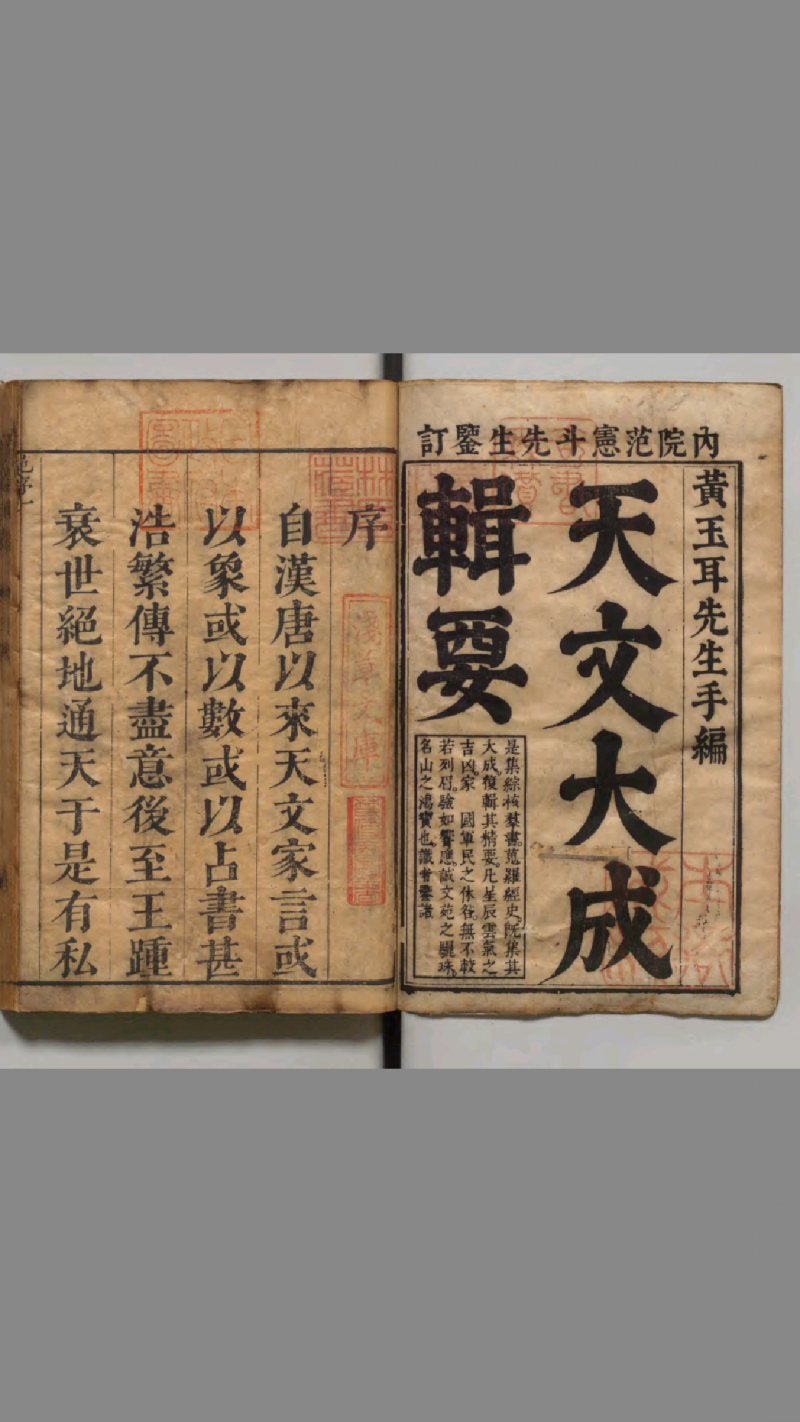 內院范憲斗先生鑒訂
黃玉耳先生手編
天文大成
輯要
是集綜核羣書蒐羅經史既集其
大成復輯其精要凡星辰雲氣之
吉凶家國軍民之休咎無不較
若列眉驗如響應誠文苑之驪珠
名山之鴻寶也識者鑒諸
序
淺草文庫
自漢唐以來天文家言或
以象或以數或以占書甚
浩繁傳不盡意後至王踵
衰世絕地通天于是有私